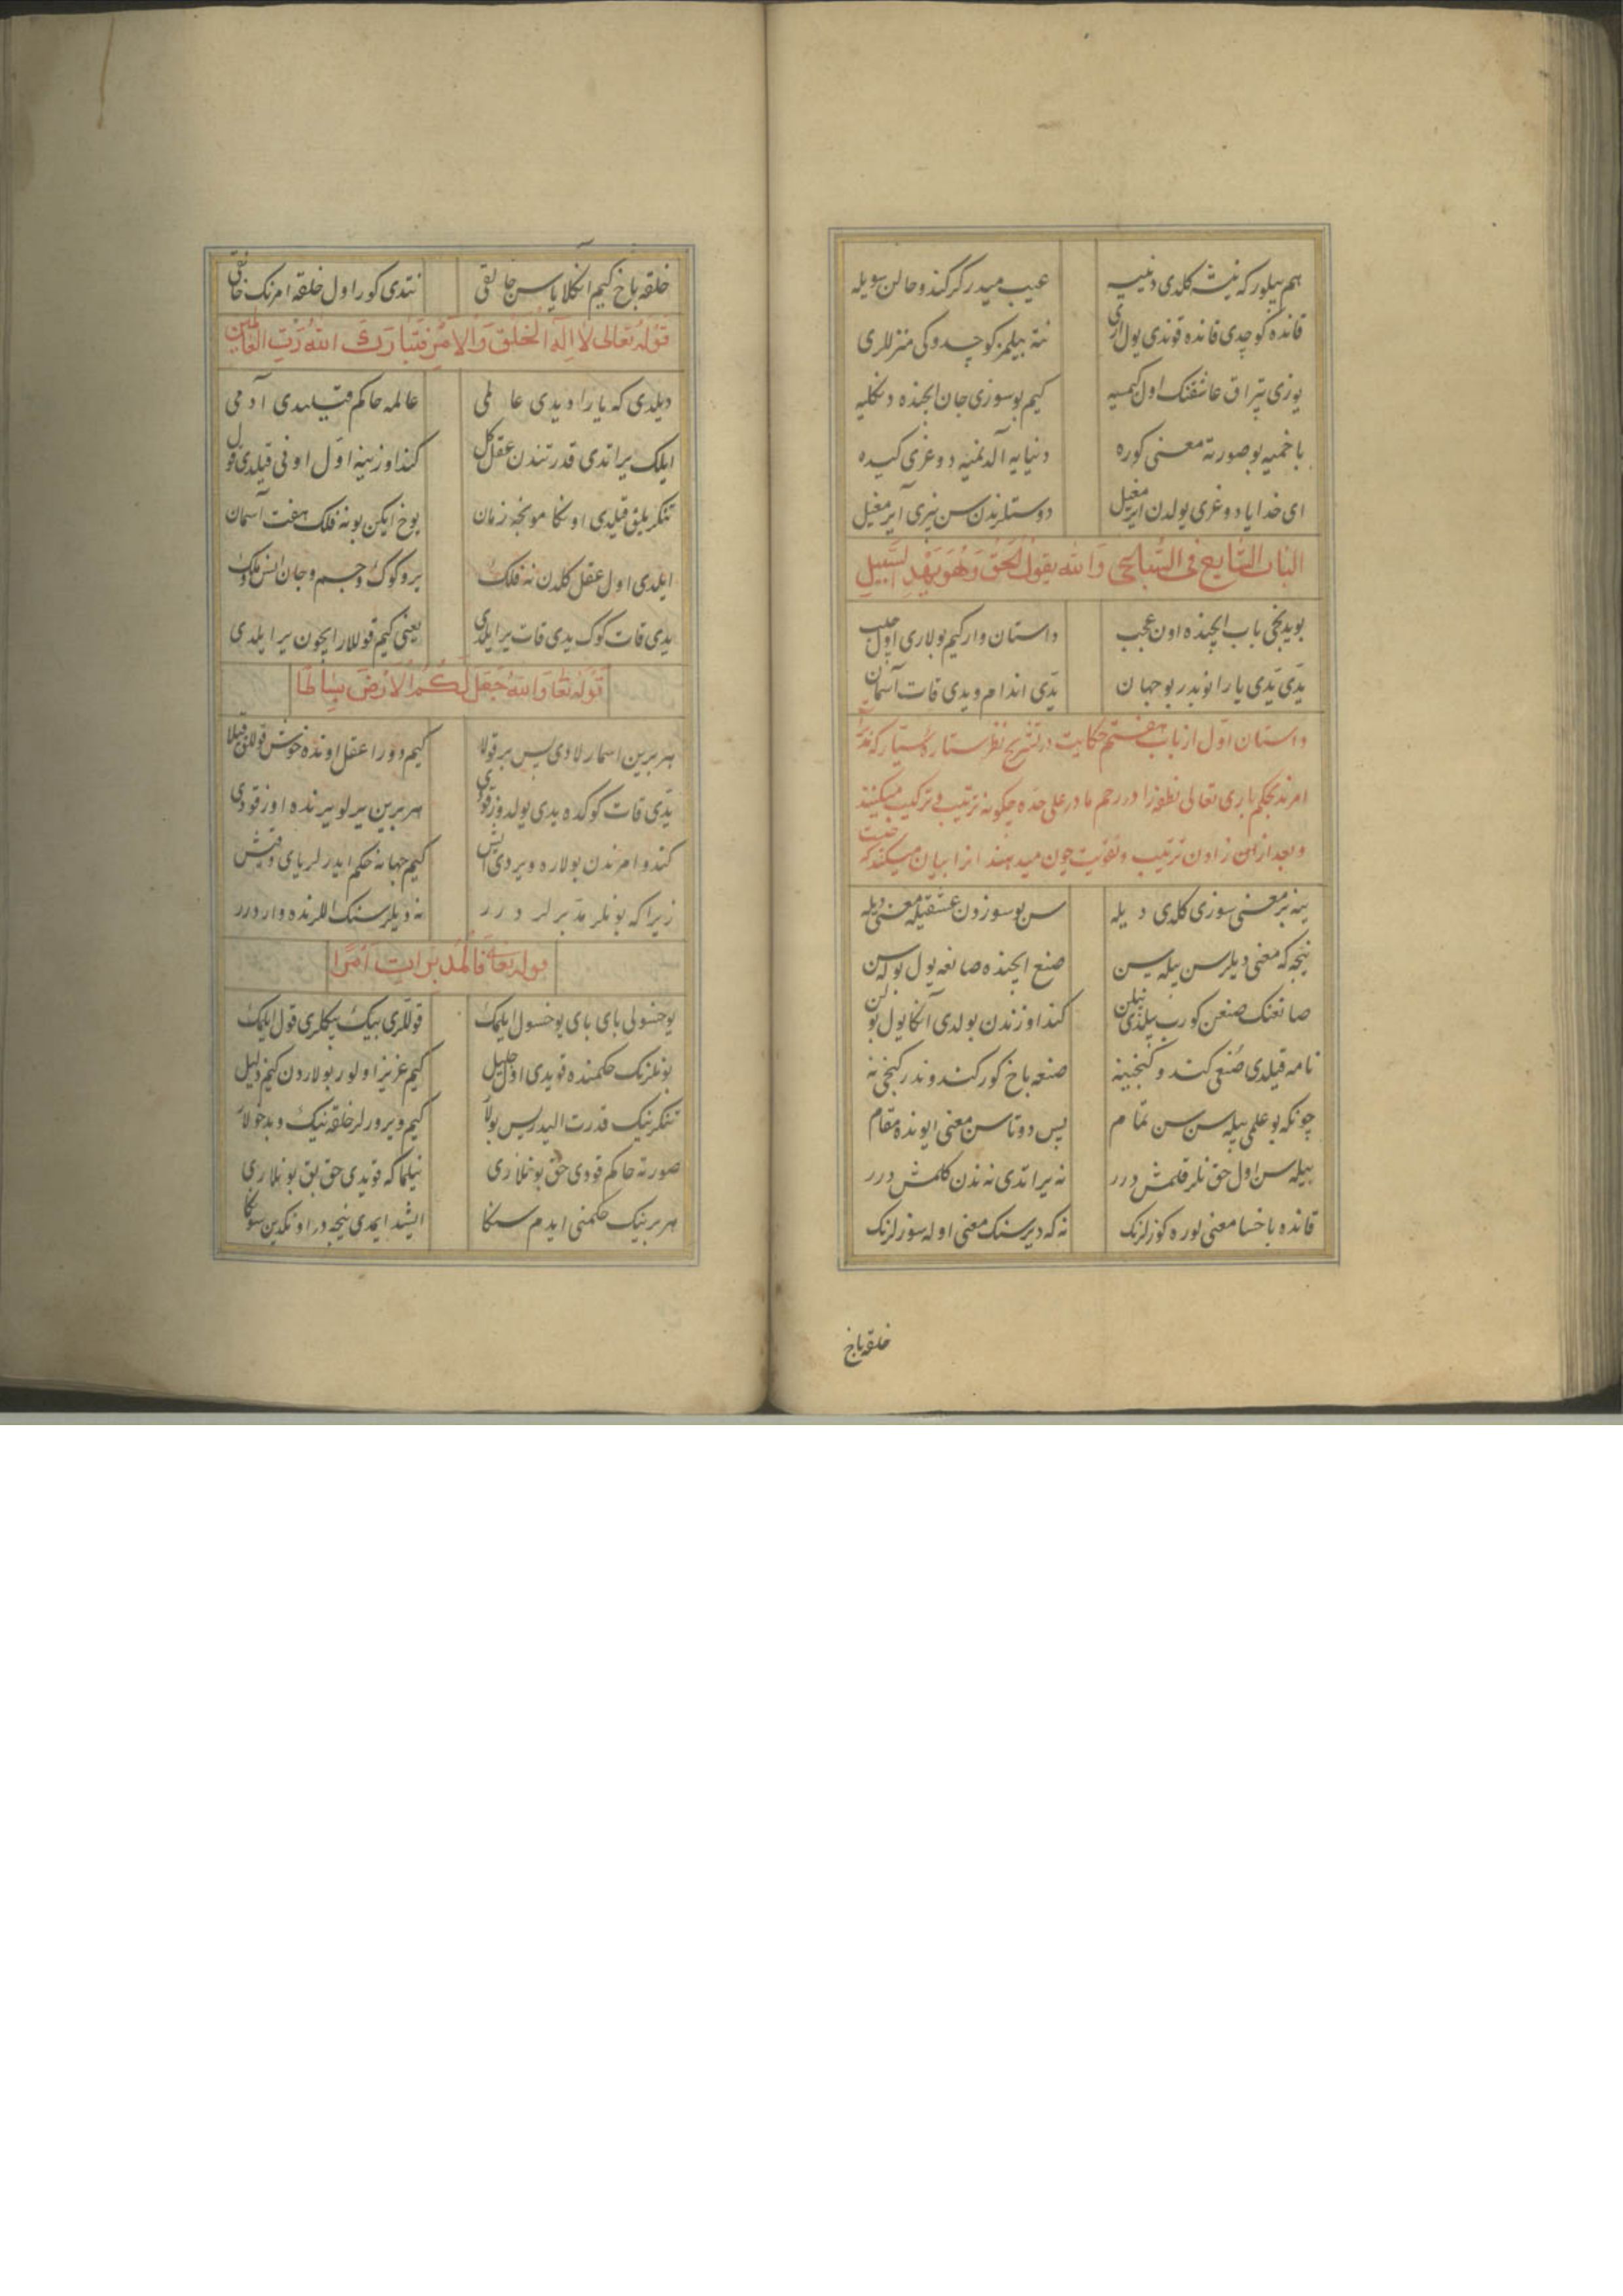 هم بیلور که نیشه کلدی دنییه عیب میدر کر کندو حالن سویله
قانده کوچدی قانده قوندی یول اری نته بیلمز کوچدوکی منزللری
یوزی یتراق عاشقنک اول کیمسیه کیم بو سوزی جان ایچنده دنکلیه
باخمیه بو صورته معنی کوره دنیایه آلدنمیه دوغری کیده
ای خدایا دوغری یولدن ایرمغیل دوستلرندن سن بیزی آیرمغیل
الباب السّابع فی السّباعی وَالله یقولُ الحَقَّ وَهُوَ یَهْدِ السَّبیل
بو یدنجی باب ایچنده اون عجب داستان وار کیم بولاری اول حبیب
یدّی یدّی یارانوبدر بو جهان یدّی اندام و یدی قات آسمان
داستان اوّل از باب هفتم حکایت در تشریح نظر ستارهٔ سیّاره که
امرند بحکم باری تعالی نطفه را در رحم مادر علی حده چکونه ترتیب و ترکیب میکنند
و بعد از آن زادن ترتیب و تقویت چون میدهند انرا بیان میکند که چیست
ینه بر معنی سوزی کلدی دیله سن بو سوزدن عشقیله معنی دیله
نیجه که معنی دیلرسن بیله سین صنع ایچنده صانعه یول بوله سن
صانعنک صنعن کورب بیلدی بیلن کند اوزندن بولدی آنکا یول بولن
نامه قیلدی صُنعی کندو کنجینه صنعه باخ کور کندوندر کنجی نه
چونکه بو علمی بیله سن سن تمام پس دوتاسن معنی ایونده مقام
بیله سن اول حق نلر قلمش درر نه یراتدی نه ندن کلمش درر
قانده باخسا معنی کوره کوزلرنک نه که دیرسنک معنی اوله سوزلرنک
خلقه باخ
خلقه باخ کیم انکلایاسن خالقی نتدی کور اول خلقه امرنک خالقی
قوله تعالی لا الَهُ الخَلْقُ وَالاَمْرُ فَتَبارَكَ اللهُ رَبُّ العالمین
دیلدی که یارادیدی عالمی عالمه حاکم قیلدی آدمی
ایلک یراتدی قدرتندن عقل کل کند اوزینه اوّل اونی قیلدی قول
تنکریلق قیلدی اونکا مونجه زمان یوخ ایکن بو نه فلک هفت آسمان
ایلدی اول عقل کلدن نه فلک یر و کوک و جسم و جان انس و ملک
یدی قات کوک یدی قات یر ایلدی یعنی کیم قوللار ایچون یر ایلدی
قوله تعا وَاللهُ جَعَلَ لَكُمُ الاَرْضَ بِسَاطًا
هر برین اسمارلادی پس بر قولا کیم دورا عقل اونده خوش قوللق قیلا
یدّی قات کوکده یدی یولدوز قودی هر برین بیر لو ییرنده اوز قودی
کندو امرندن بولاره ویردی ایش کیم جهانه حکم ایدرلر یای و قیش
زیرا که بونلر مدبرلر درر نه دیلرسنک اللرنده وار درر
قوله تعا فَالْمُدَبِّرَاتِ اَمْرًا
یوخسولی بای بای یوخسول ایلمک قوللری بیک بیکلری قول ایلمک
بونلرنک حکمنده قویدی اول جلیل کیم عزیز اولور بولاردن کیم ذلیل
تنکرینک قدرت الیدر پس بولا کیم ویرورلر خلقه نیک و بد حولا
صورته حاکم قودی حق بونلاری نیلما که قویدی حق بق بونلاری
هر برینک حکمنی ایدم سنکا ایشد ایمدی نیجه در اونکدین سونکا